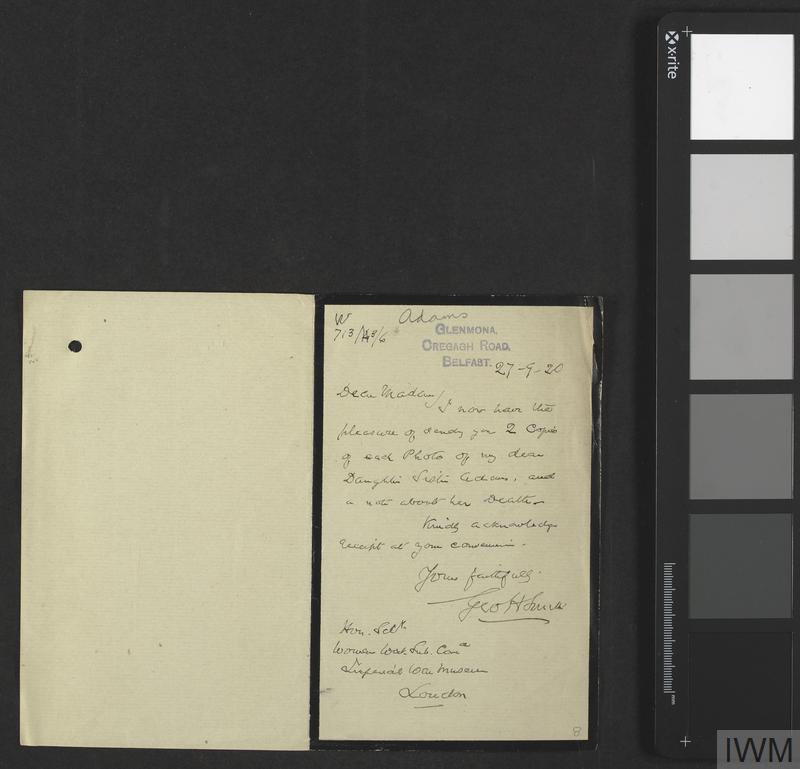 W Adams
713/143/6
GLENMONA,
OREGAGH ROAD,
BELFAST.
27-9-20
Dear Madam
I now have the
pleasure of sendg you 2 Copies
of each Photo of my dear
Daughter Sister Adams, and
a note about her Death.
Kindly acknowledge
receipt at your convenience.
Yours faithfully
Geo H Smith
Hon. Secty
Women Work Sub. Com
Imperial War Museum
London
8
x·rite
mm
IWM